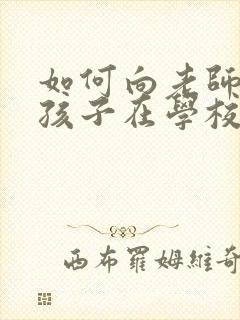 如何向老師
孩子在學校
西布羅姆維奇